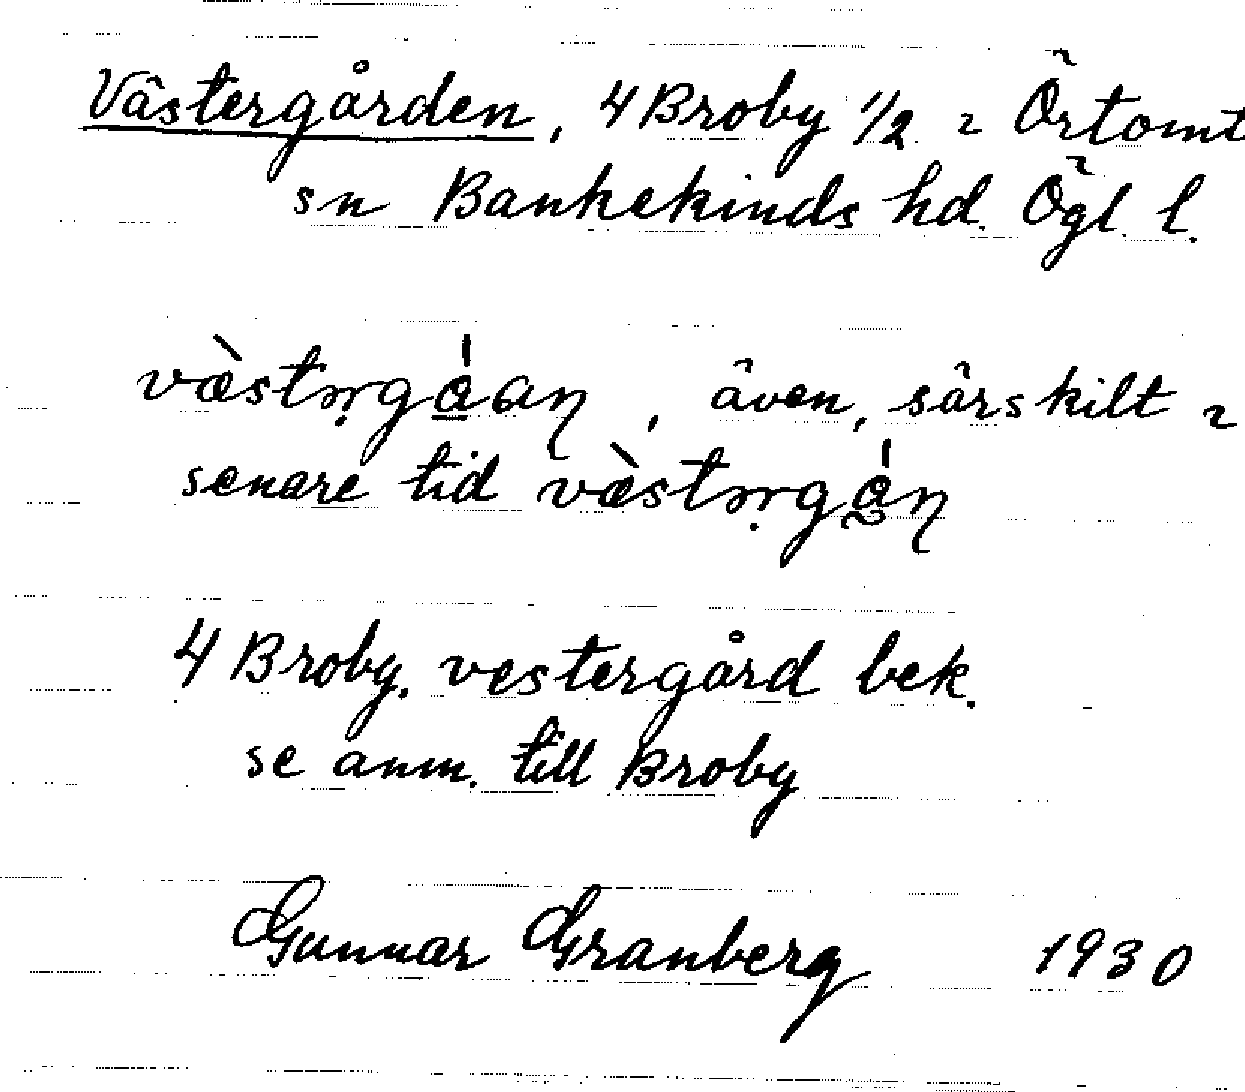 Västergården, 4 Broby 1/2 i Örtomt
sn Bankekinds hd. Ögl. l.
även, särskilt i
senare tid
4 Broby. vestergård bek.
se anm. till Broby
Gunnar Granberg 1930